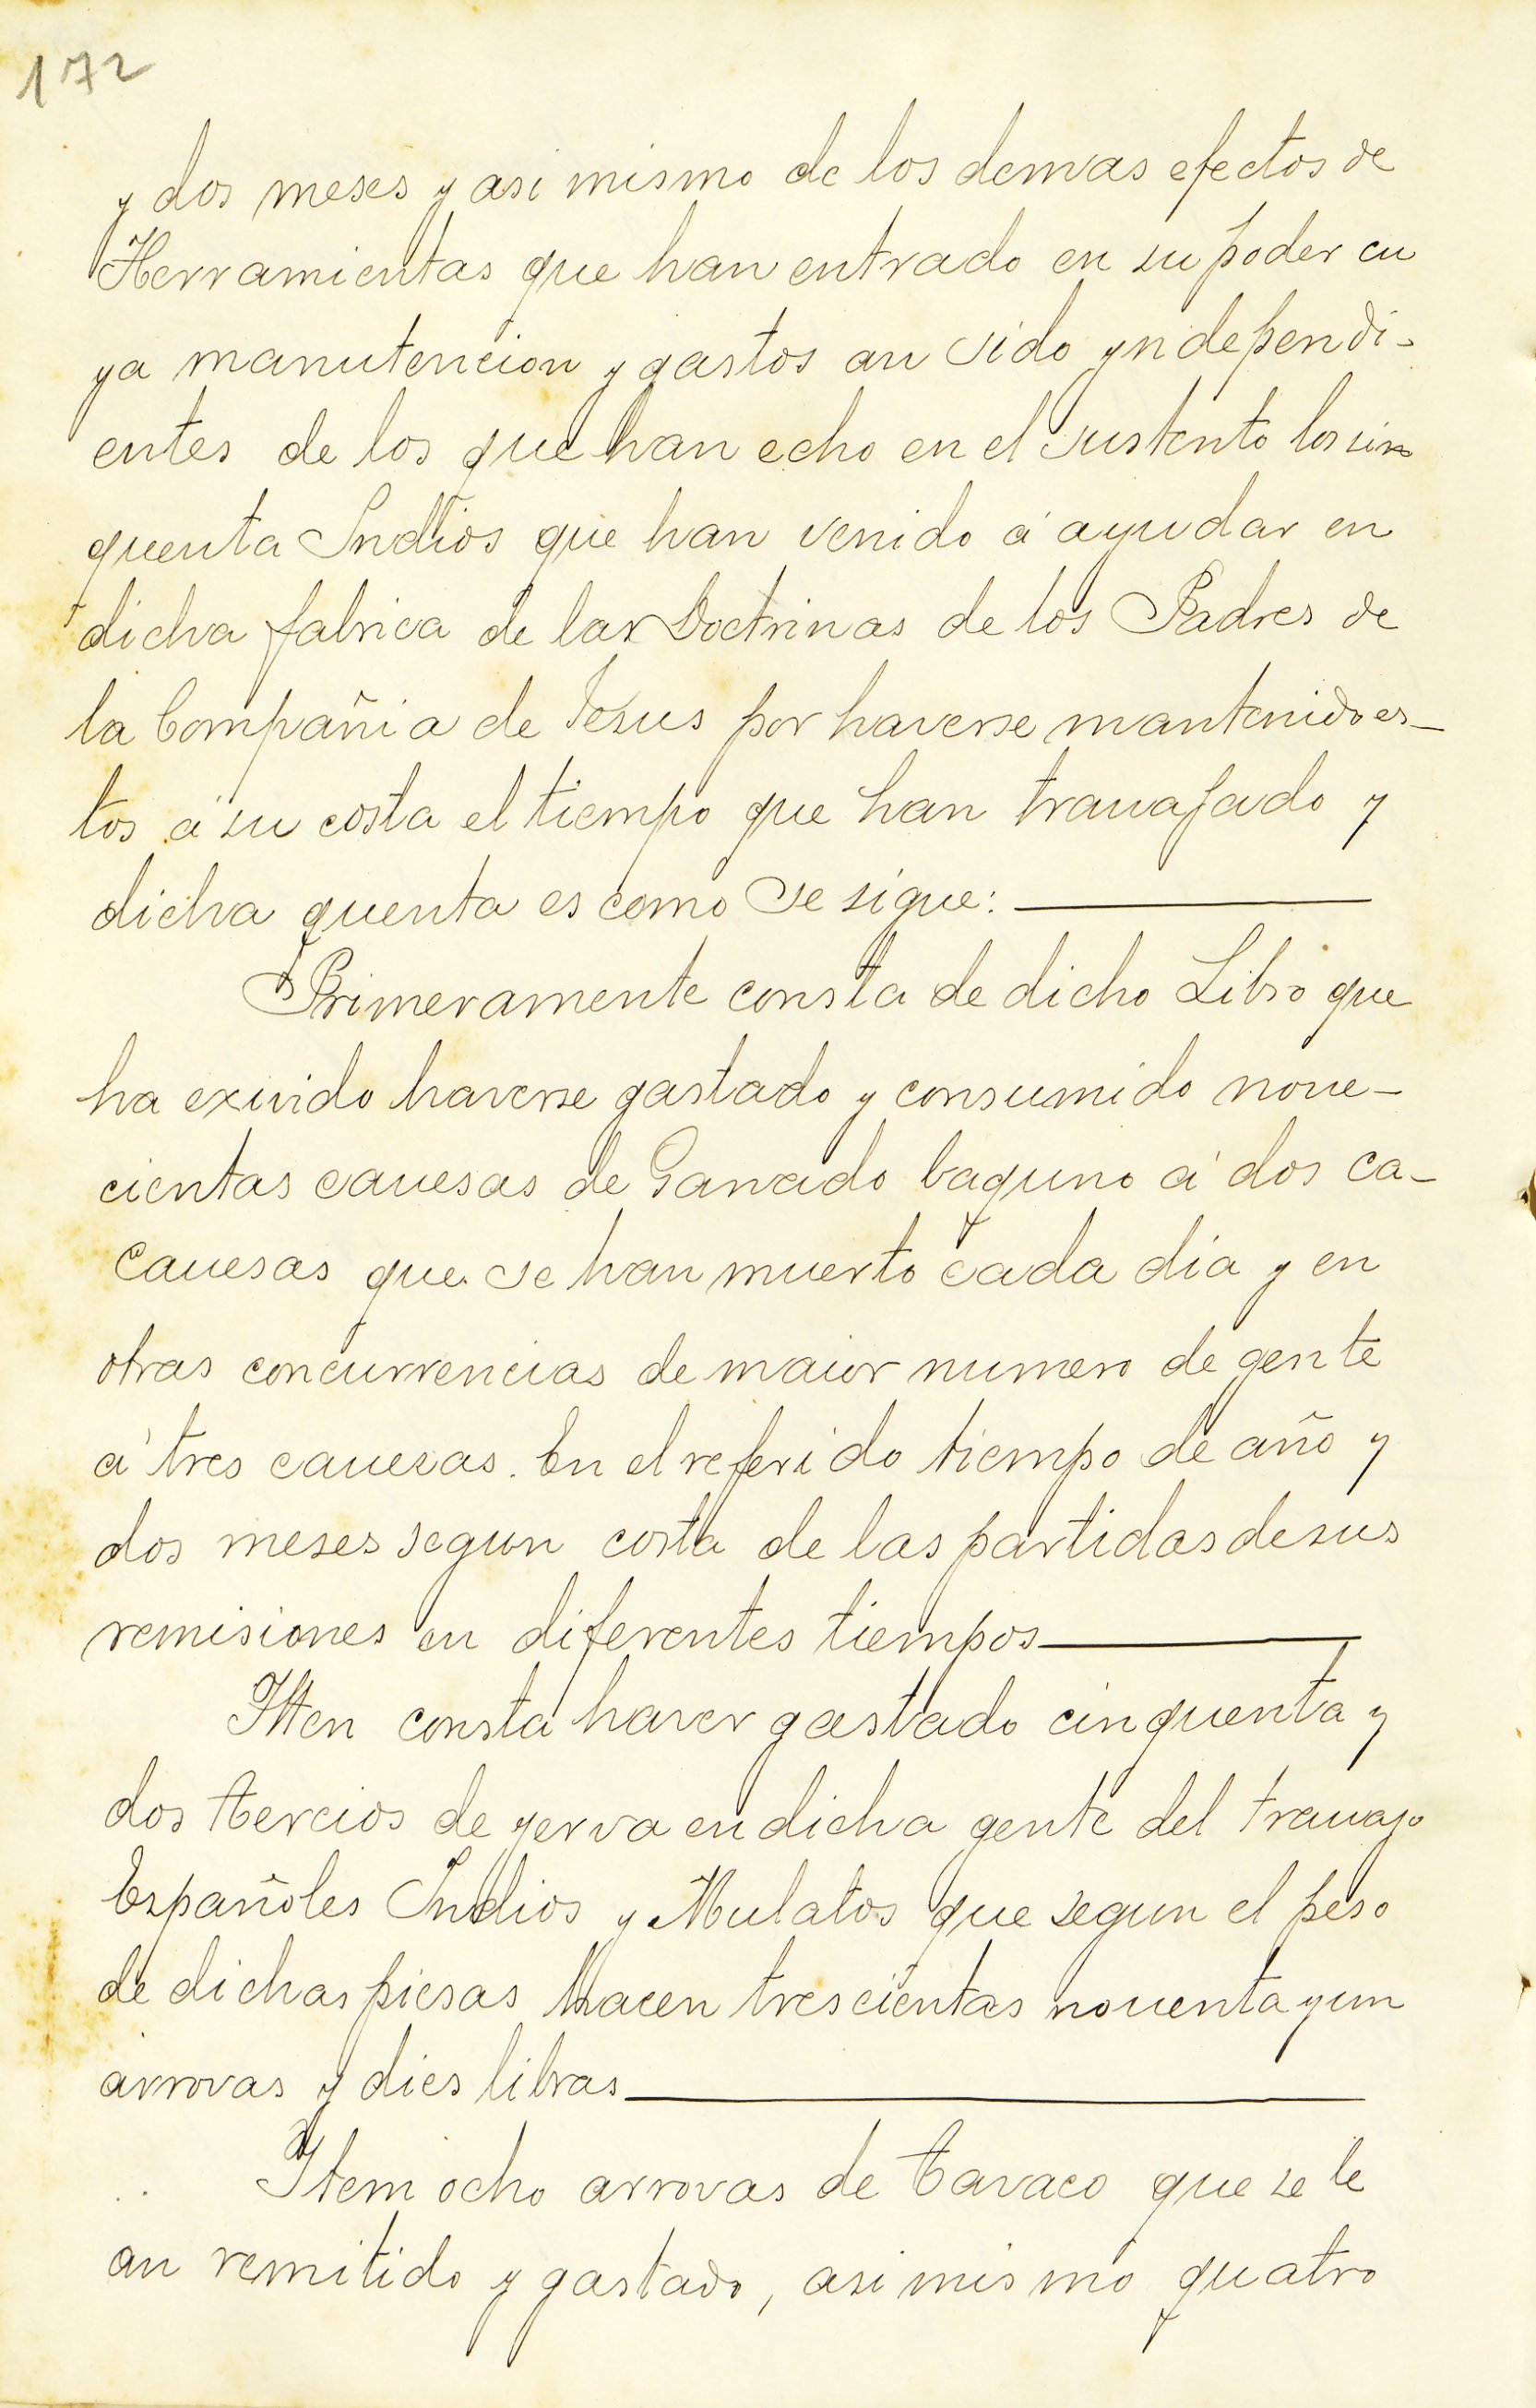 172
y dos meses y asi mismo de los demas efectos de
Herramientas que han entrado en su poder cu
ya manutencion y gastos an sido yndependi-
entes de los que han echo en el sustento los sin
quenta Indios que han venido á ayudar en
dicha fabrica de las Doctrinas de los Padres de
la Compañia de Jesus por haverse mantenido es-
tos á su costa el tiempo que han trauajado y
dicha quenta es como se sigue:
Primeramente consta de dicho Libro que
ha exivido haverse gastado y consumido noue-
cientas cauesas de Ganado baquno á dos ca-
cauesas que se han muerto cada dia y en
otras concurrencias de maior numero de gente
á tres cauesas. En el referido tiempo de año y
dos meses segun costa de las partidas de sus
remisiones en diferentes tiempos
Itten consta haver gastado cinquenta y
dos tercios de yerva en dicha gente del trauajo
Españoles Indios y Mulatos que segun el peso
de dichas piesas hacen trescientas nouenta y un
arrovas y dies libras
Item ocho arrovas de tavaco que se le
an remitido y gastado, asi mismo quatro